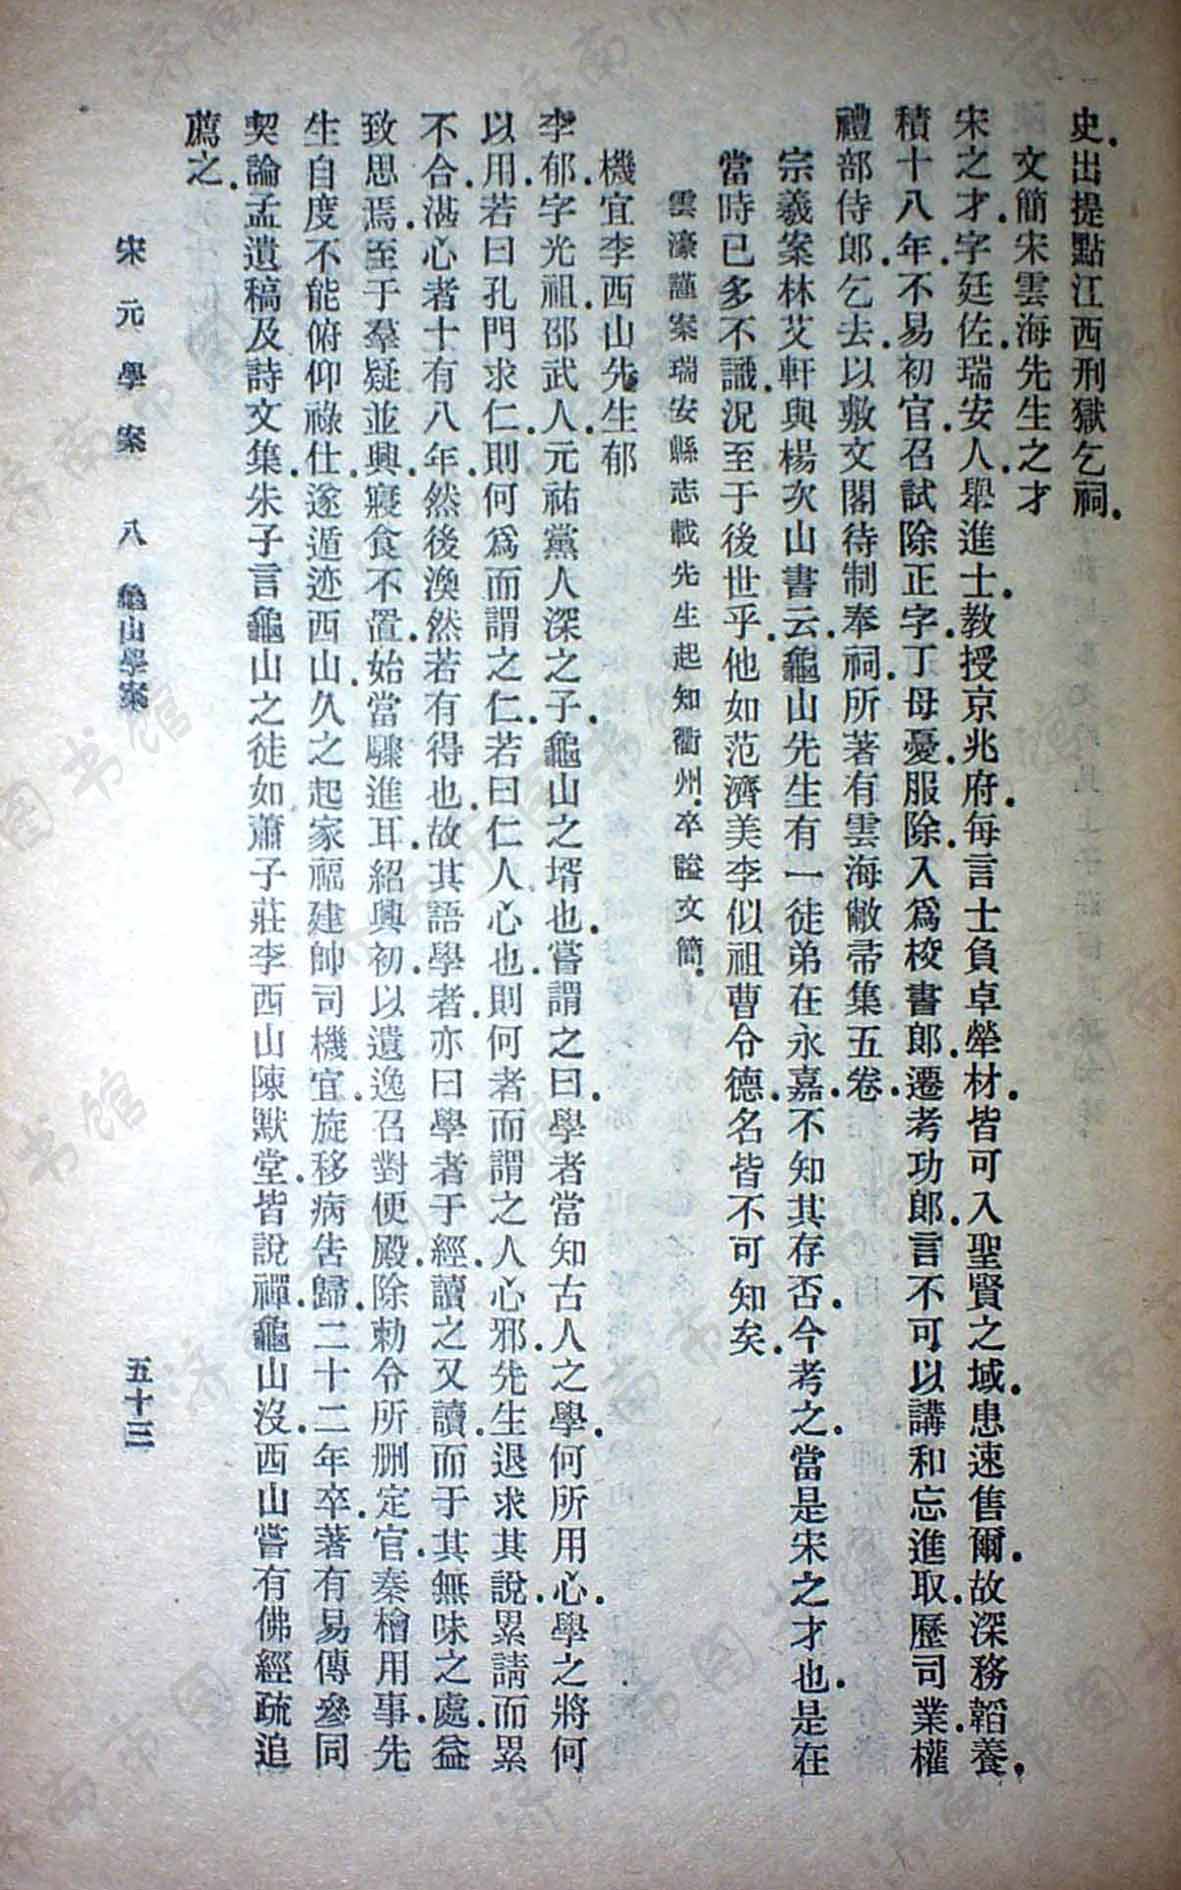 史出提點江西刑獄乞祠.
文簡宋雲海先生之才
宋之才.字廷佐.瑞安人.舉進士.教授京兆府.每言士負卓犖材.皆可入聖賢之域.患速售爾.故深務韜養.
積十八年.不易初官.召試除正字.丁母憂.服除.入爲校書郎.遷考功郎.言不可以講和忘進取.歷司業.權
禮部侍郎.乞去.以敷文閣待制奉祠.所著有雲海敝帚集五卷.
宗羲案林艾軒與楊次山書云.龜山先生有一徒弟在永嘉.不知其存否.今考之.當是宋之才也.是在
當時已多不識.況至于後世乎.他如范濟美李似祖曹令德.名皆不可知矣.
雲濠謹案瑞安縣志載先生起知衢州.卒謚文簡.
機宜李西山先生郁
李郁.字光祖.邵武人.元祐黨人深之子.龜山之壻也.嘗謂之曰.學者當知古人之學.何所用心.學之將何
以用.若曰孔門求仁.則何爲而謂之仁.若曰仁人心也.則何者而謂之人心邪.先生退求其說.累請而累
不合.湛心者十有八年.然後渙然若有得也.故其語學者.亦曰學者于經.讀之又讀.而于其無味之處.益
致思焉.至于羣疑並興.寢食不置.始當驟進耳.紹興初.以遺逸召對便殿.除勅令所删定官.秦檜用事.先
生自度不能俯仰祿仕.遂遁迹西山.久之.起家福建帥司機宜.旋移病告歸.二十二年卒.著有易傳參同
契論孟遺稿及詩文集.朱子言龜山之徒如蕭子莊李西山陳默堂皆說禪.龜山沒.西山嘗有佛經疏追
薦之.
宋元學案 八 龜山學案 五十三
济南市图书馆